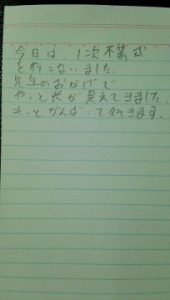 今日は、1次不等式
を行こないました。
先生のおかげで
やっと光が見えてきました
もっとがんばって行きます。